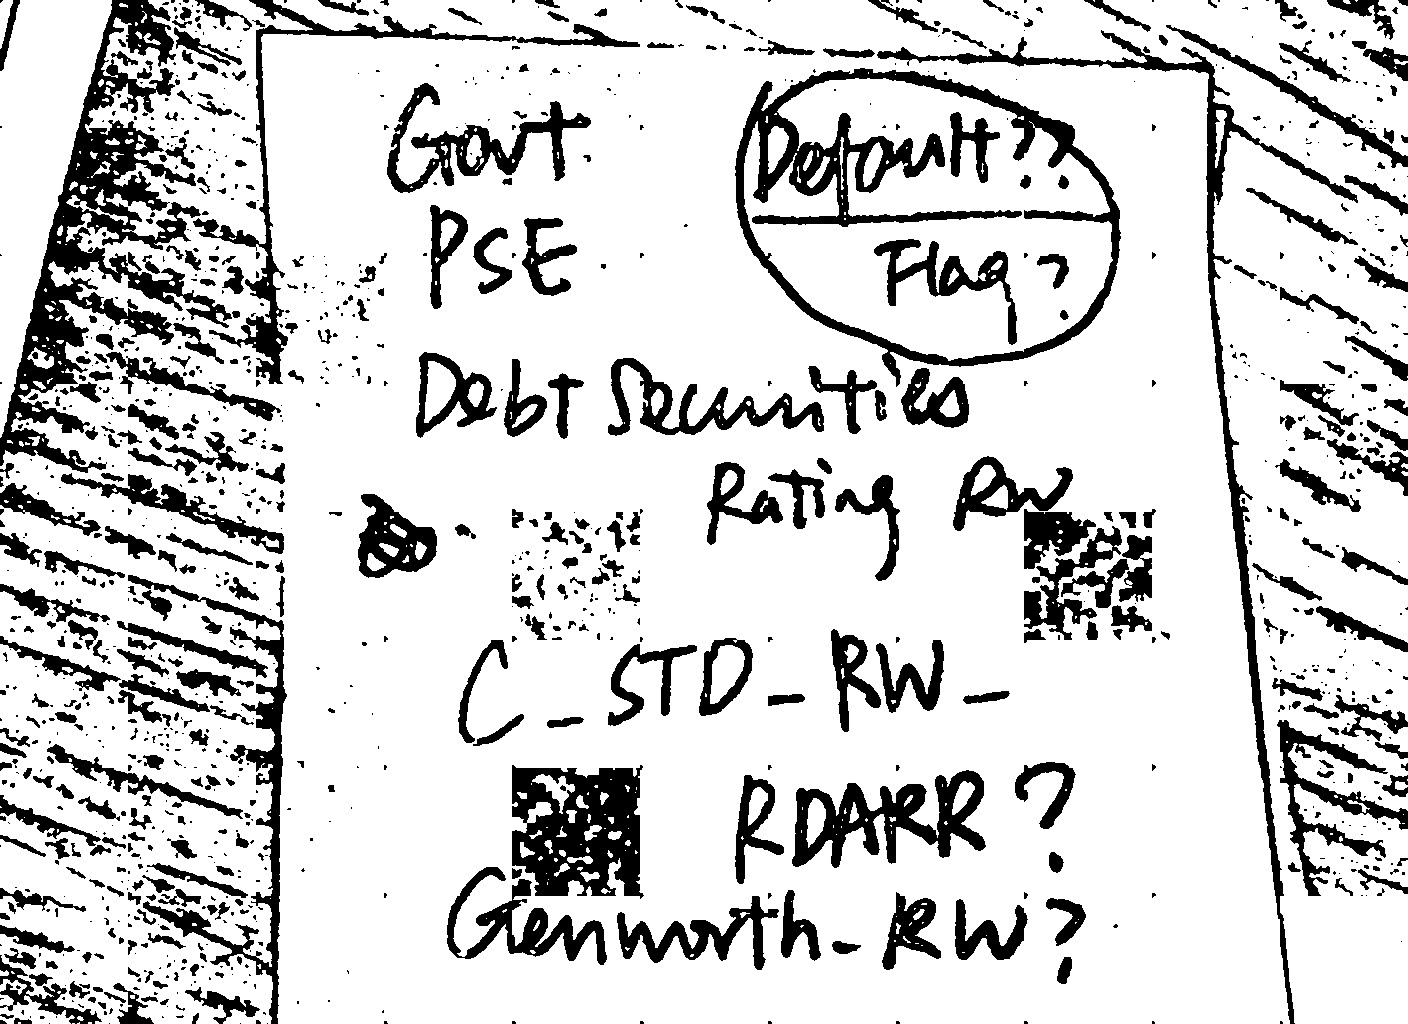 Govt
Default??
PSE
Flag?
Debt Securities
Rating RW
C_STD_RW_
RDARR?
Genworth_RW?